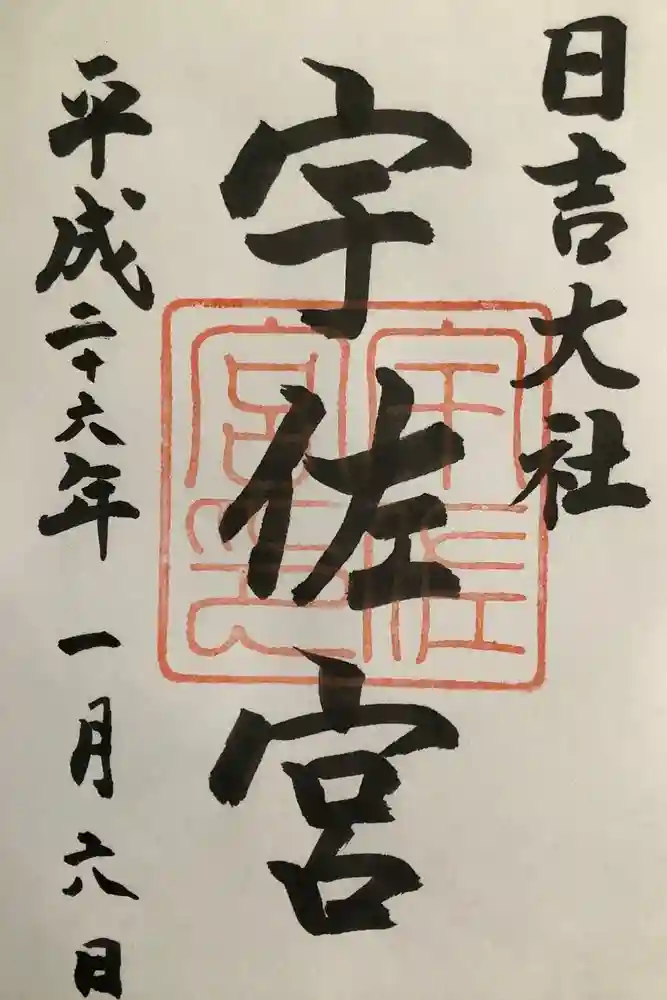 日吉大社
宇佐宮
宇佐宮印
平成二十六年一月六日